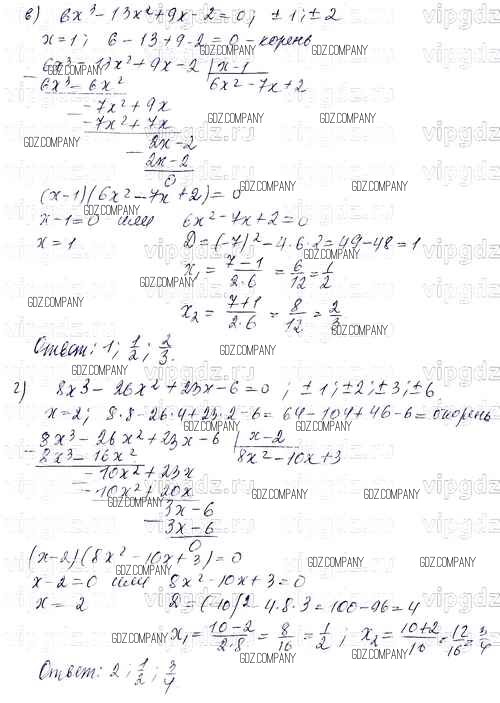 в) 6x³ - 13x² + 9x - 2 = 0; ± 1; ± 2
x = 1; 6 - 13 + 9 - 2 = 0 - корень
6x³ - 13x² + 9x - 2 | x - 1
6x³ - 6x² 6x² - 7x + 2
- 7x² + 9x
- 7x² + 7x
2x - 2
2x - 2
0
(x - 1)(6x² - 7x + 2) = 0
x - 1 = 0 или 6x² - 7x + 2 = 0
x = 1 D = (-7)² - 4·6·2 = 49 - 48 = 1
x₁ = (7 - 1)/(2·6) = 6/12 = 1/2
x₂ = (7 + 1)/(2·6) = 8/12 = 2/3
Ответ: 1; 1/2; 2/3.
г) 8x³ - 26x² + 23x - 6 = 0; ± 1; ± 2; ± 3; ± 6
x = 2; 8·8 - 26·4 + 23·2 - 6 = 64 - 104 + 46 - 6 = 0 корень
8x³ - 26x² + 23x - 6 | x - 2
8x³ - 16x² 8x² - 10x + 3
- 10x² + 23x
- 10x² + 20x
3x - 6
3x - 6
0
(x - 2)(8x² - 10x + 3) = 0
x - 2 = 0 или 8x² - 10x + 3 = 0
x = 2 D = (-10)² - 4·8·3 = 100 - 96 = 4
x₁ = (10 - 2)/(2·8) = 8/16 = 1/2; x₂ = (10 + 2)/16 = 12/16 = 3/4
Ответ: 2; 1/2; 3/4
GDZ.COMPANY
vipgdz.ru